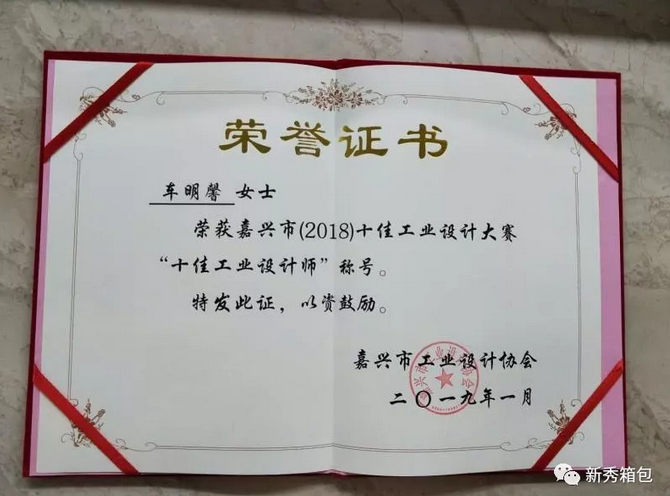 荣誉证书
车明馨 女士
荣获嘉兴市(2018)十佳工业设计大赛
“十佳工业设计师”称号。
特发此证，以资鼓励。
嘉兴市工业设计协会
二〇一九年一月
新秀箱包